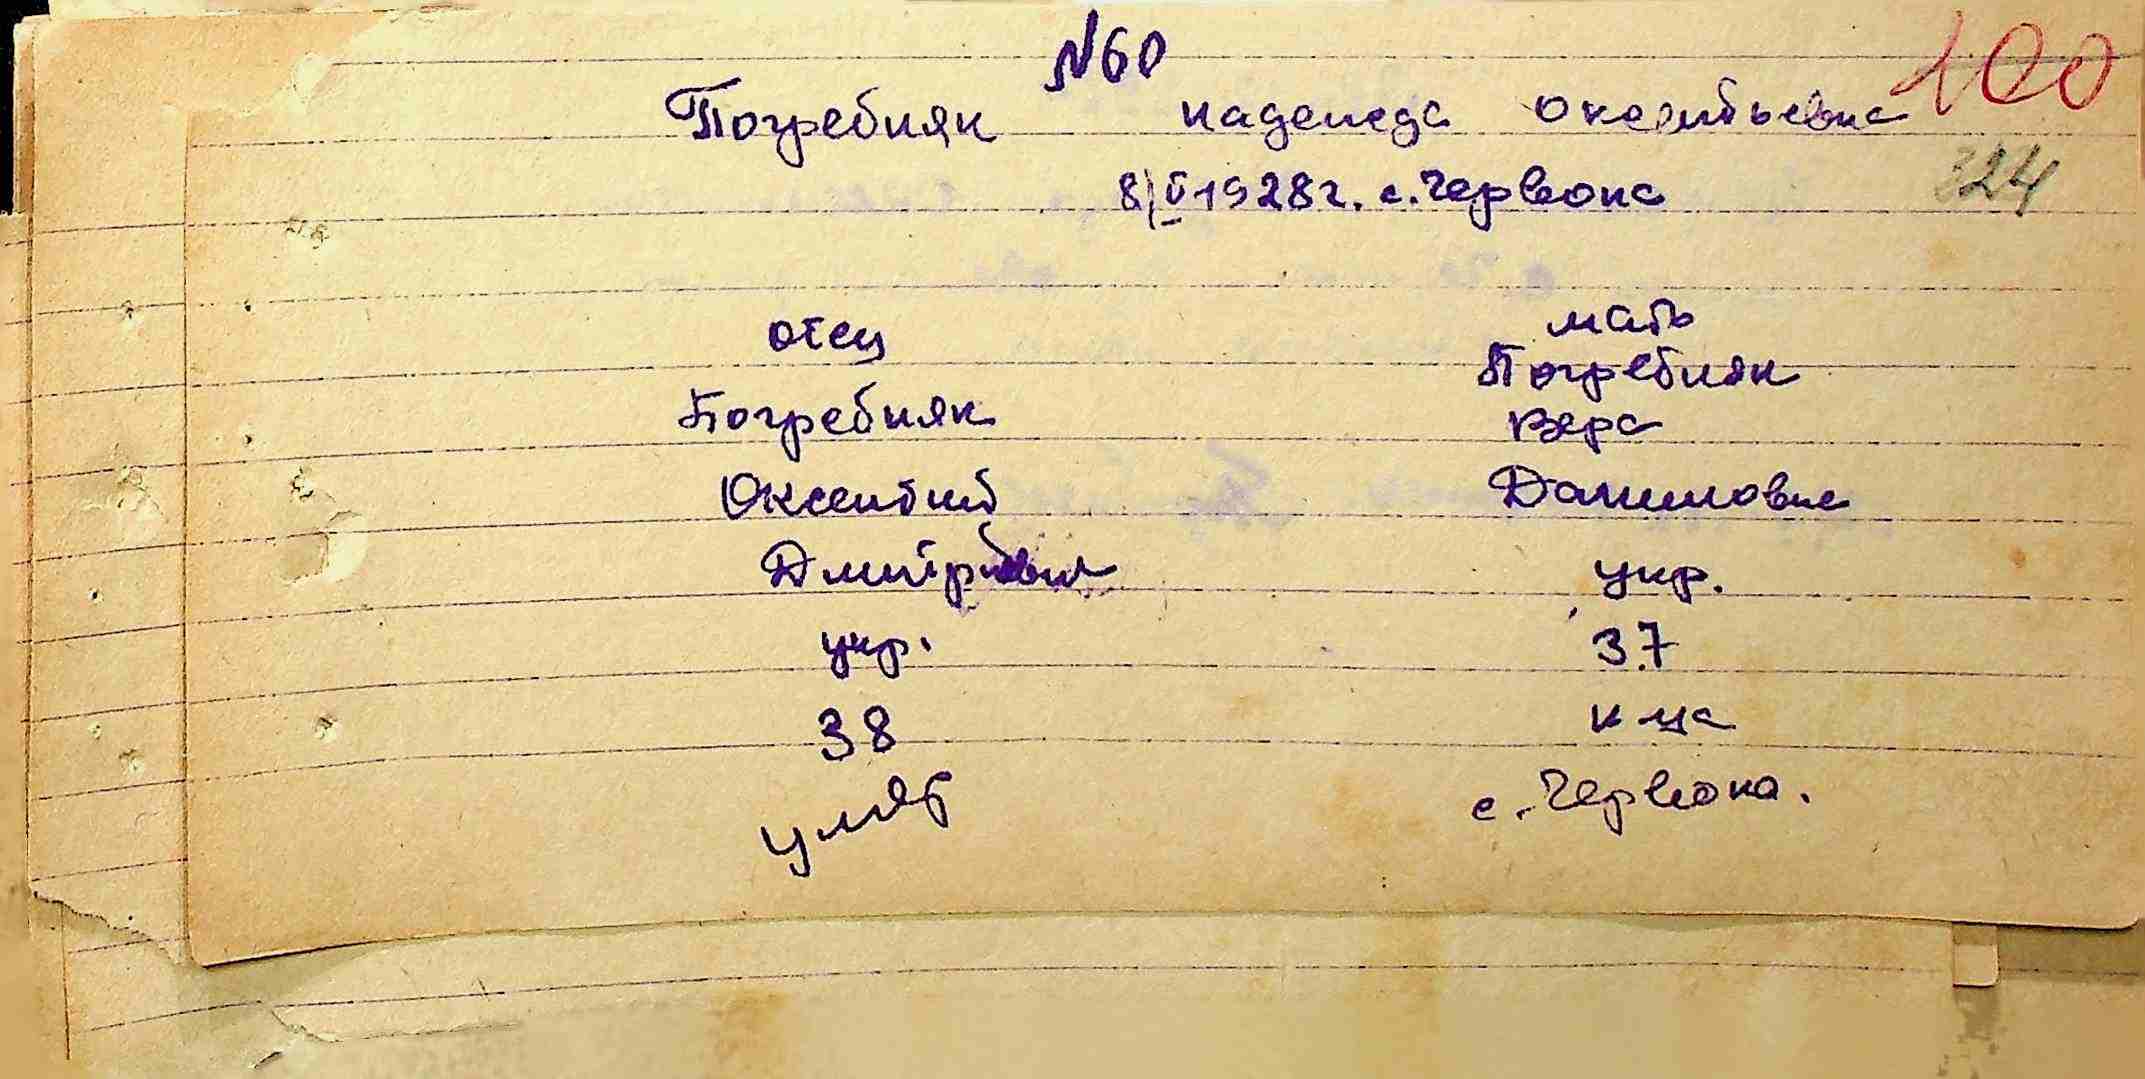 №60
100
Погребняк надежда Оксентьевна
8/V 1928г. с. Червона
324
отец
мать
Погребняк
Погребняк
Вера
Оксентий
Даниловна
Дмитрович
укр.
укр.
37
38
к-ца
с. Червона.